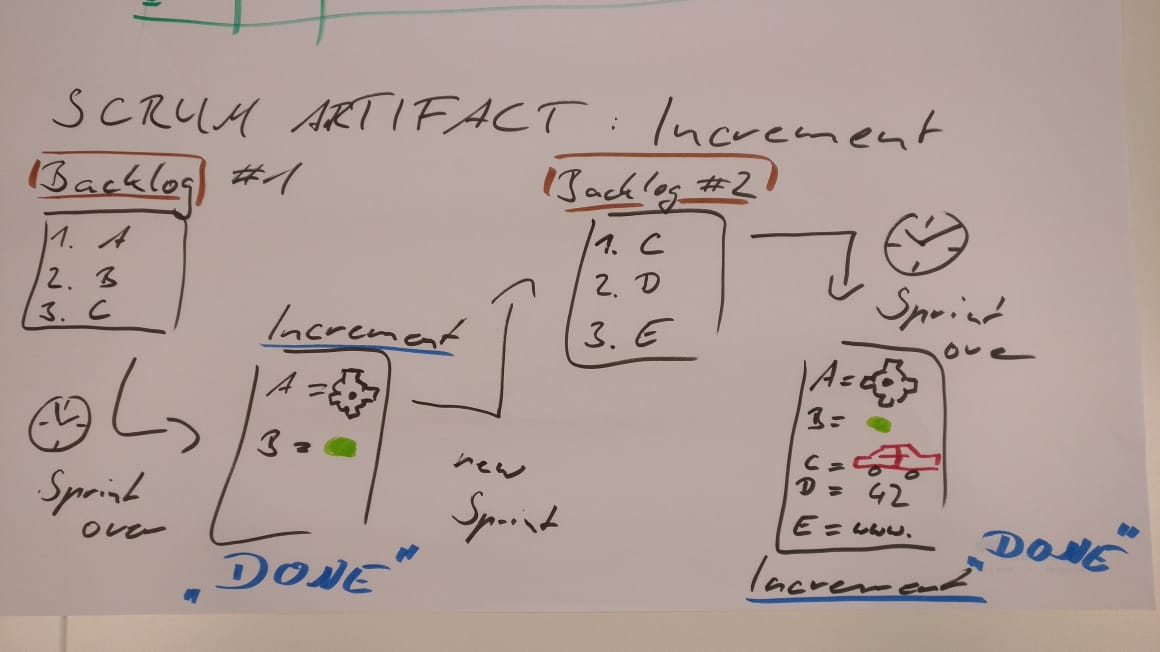 SCRUM ARTIFACT : Increment
Backlog #1
1. A
2. B
3. C
Sprint
over
Increment
A =
B =
„DONE"
new
Sprint
Backlog #2
1. C
2. D
3. E
Sprint
over
A =
B =
C =
D = 42
E = www.
Increment
„DONE"